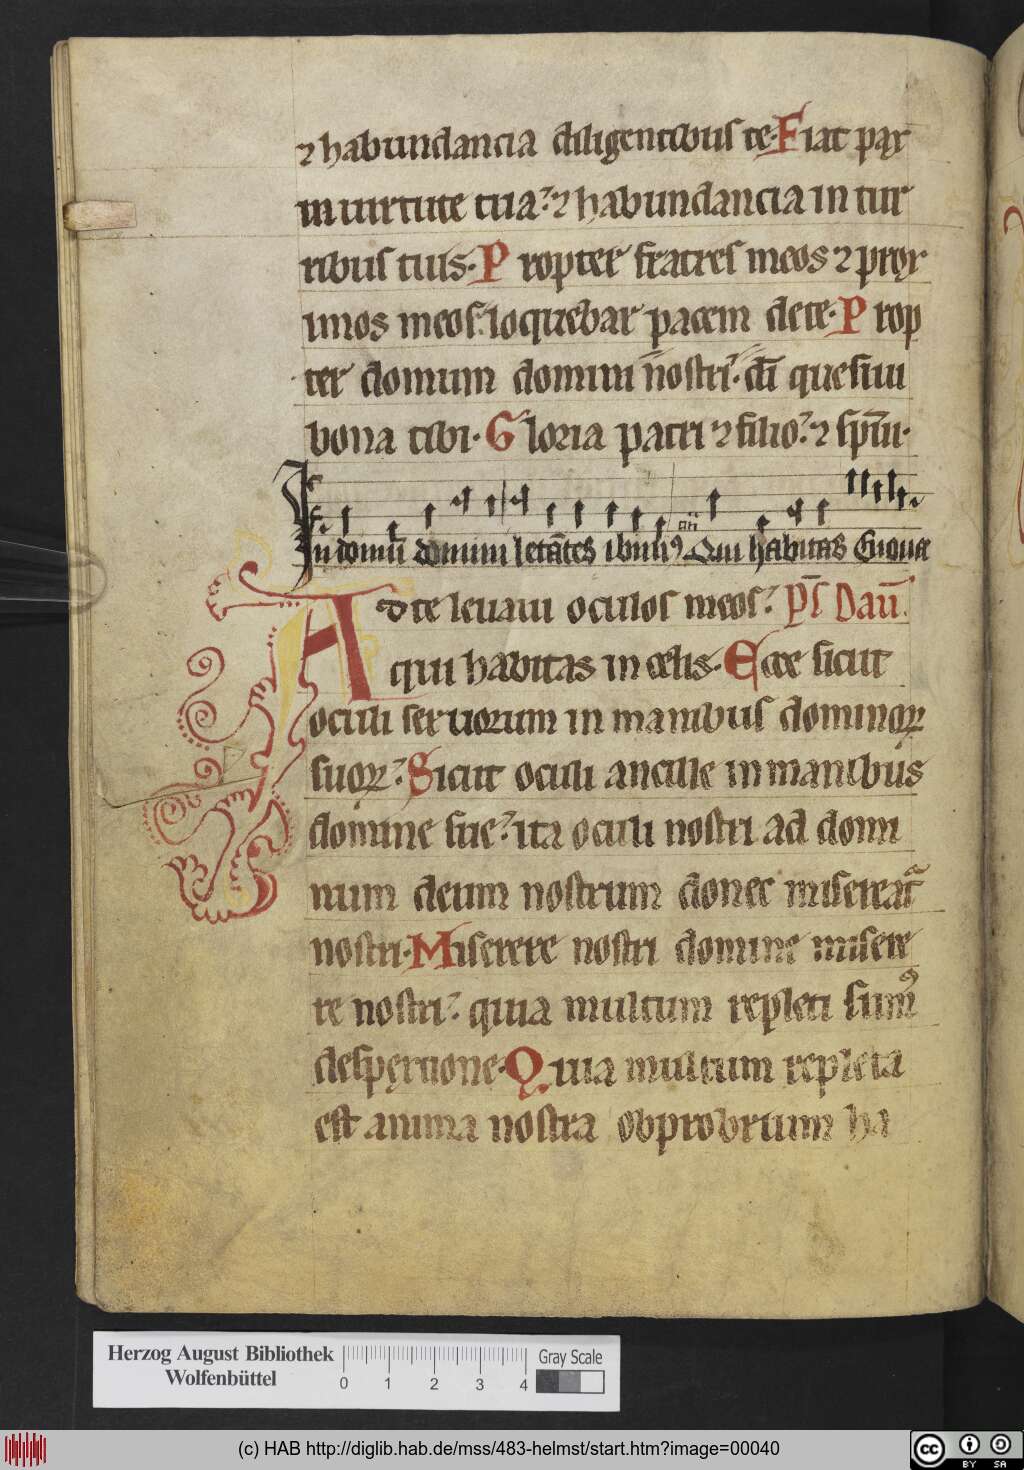 ⁊ habundancia diligentibus te. Fiat pax
in uirtute tua: ⁊ habundancia in tur
ribus tuis. Propter fratres meos ⁊ prox
imos meos: loquebar pacem de te. Prop
ter domum domini nostri: dī quesiui
bona tibi. Gloria patri ⁊ filio: ⁊ spūi.
In domū domini letātes ibimꝰ. añ Qui habitas Euouae
Ad te leuaui oculos meos: ps̄ Dauī.
qui habitas in celis. Ecce sicut
oculi seruorum in manibus dominoꝝ
suoꝝ: Sicut oculi ancille in manibus
domine sue: ita oculi nostri ad domi
num deum nostrum donec misereat᷑
nostri. Miserere nostri domine misere
re nostri: quia multum repleti sumꝰ
despectione. Quia multum repleta
est anima nostra obprobrium ha
Herzog August Bibliothek
Wolfenbüttel
0 1 2 3 4
Gray Scale
(c) HAB http://diglib.hab.de/mss/483-helmst/start.htm?image=00040
cc BY SA